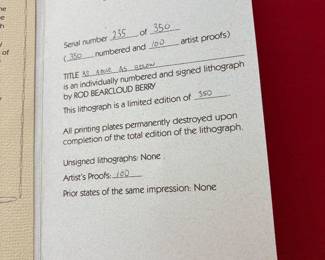 Serial number 235 of 350
(350 numbered and 100 artist proofs)
TITLE As Above As Below
is an individually numbered and signed lithograph
by ROD BEARCLOUD BERRY
This lithograph is a limited edition of 350
All printing plates permanently destroyed upon
completion of the total edition of the lithograph.
Unsigned lithographs: None
Artist's Proofs: 100
Prior states of the same impression: None
of